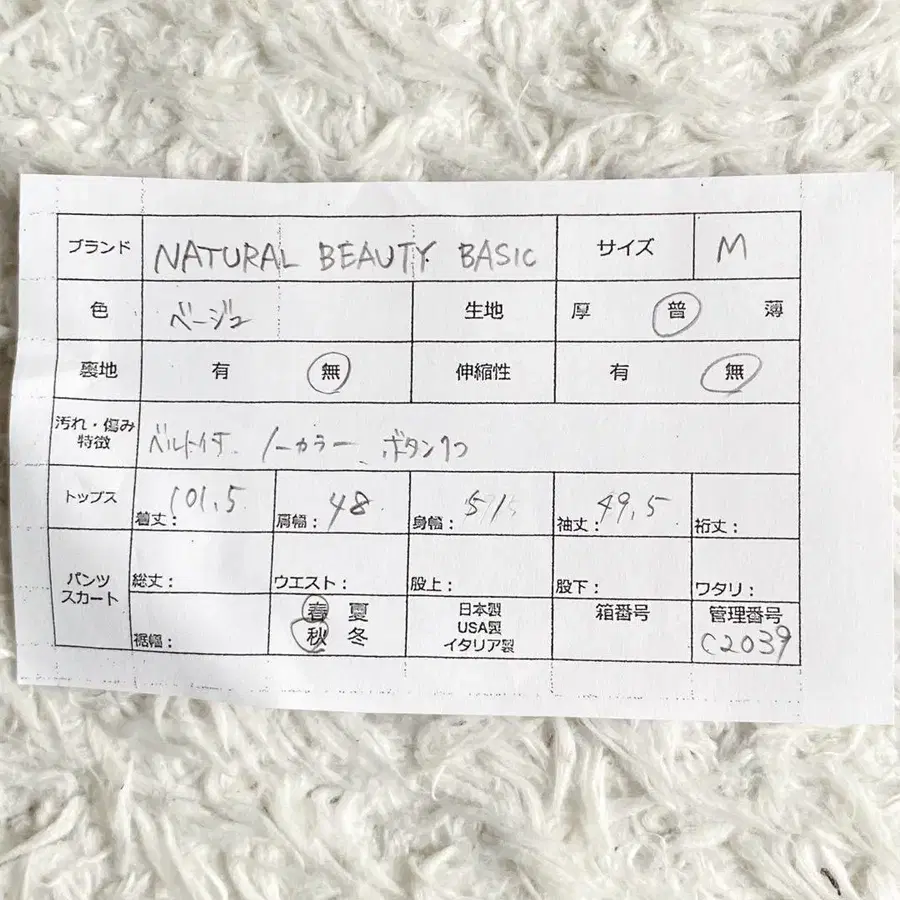 ブランド NATURAL BEAUTY BASIC サイズ M
色 ベージュ 生地 厚 普 薄
裏地 有 無 伸縮性 有 無
汚れ・傷み
特徴 ベルト付 ノーカラー ボタン1つ
トップス 着丈: 101.5 肩幅: 48 身幅: 51 袖丈: 49.5 裄丈:
パンツ
スカート 総丈: ウエスト: 股上: 股下: ワタリ:
裾幅: 春 夏
秋 冬
日本製
USA製
イタリア製
箱番号
管理番号
C2039